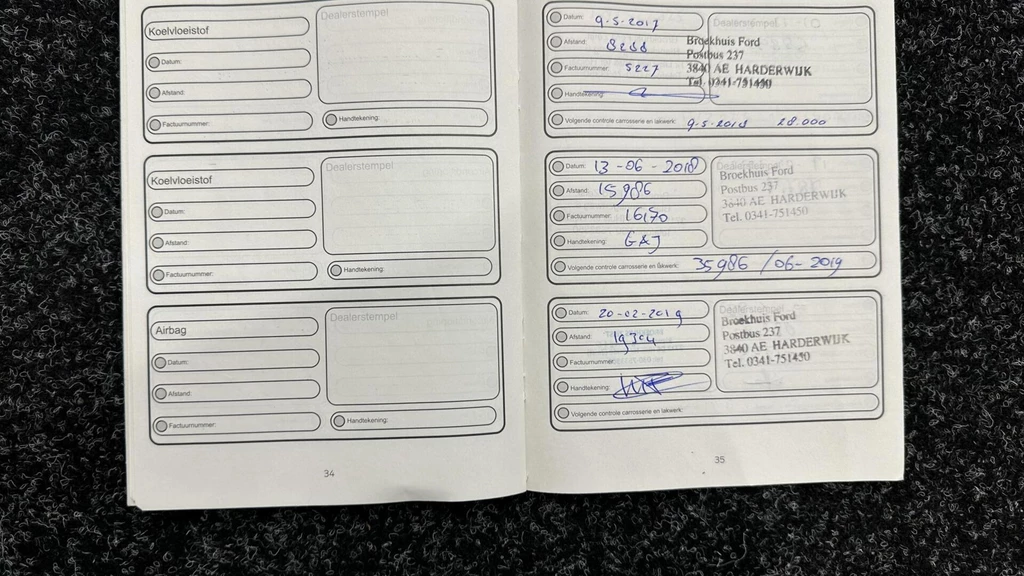 Koelvloeistof
Dealerstempel
Datum:
Afstand:
Factuurnummer:
Handtekening:
Koelvloeistof
Dealerstempel
Datum:
Afstand:
Factuurnummer:
Handtekening:
Airbag
Dealerstempel
Datum:
Afstand:
Factuurnummer:
Handtekening:
34
Datum: 9-5-2017
Afstand: 8288
Factuurnummer: 5227
Handtekening:
Dealerstempel
Broekhuis Ford
Postbus 237
3840 AE HARDERWIJK
Tel. 0341-751450
Volgende controle carrosserie en lakwerk: 9-5-2018 28.000
Datum: 13-06-2018
Afstand: 15986
Factuurnummer: 16170
Handtekening: G&J
Dealerstempel
Broekhuis Ford
Postbus 237
3840 AE HARDERWIJK
Tel. 0341-751450
Volgende controle carrosserie en lakwerk: 35986 /06-2019
Datum: 20-02-2019
Afstand: 19304
Factuurnummer:
Handtekening:
Dealerstempel
Broekhuis Ford
Postbus 237
3840 AE HARDERWIJK
Tel. 0341-751450
Volgende controle carrosserie en lakwerk:
35